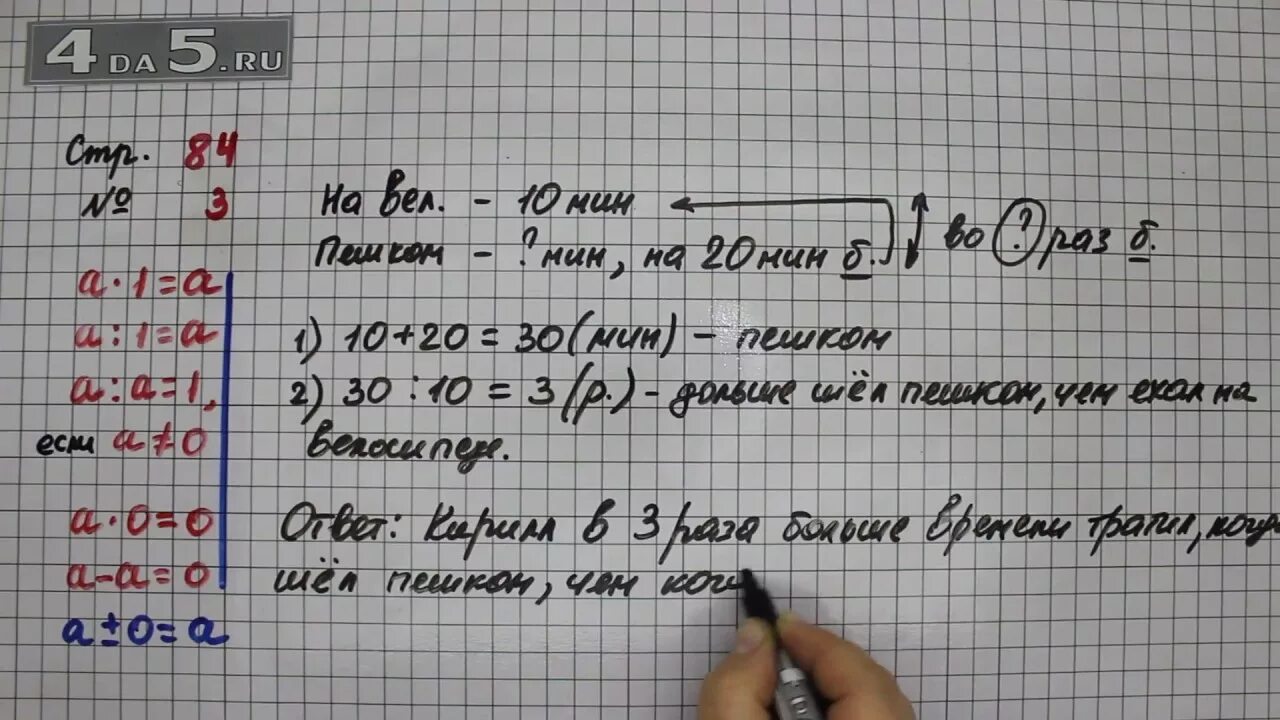 4DA5.RU
Стр. 84
№ 3
На вел. - 10 мин
Пешком - ? мин, на 20 мин б.
во ? раз б.
a · 1 = a
a : 1 = a
a : a = 1,
если a ≠ 0
a · 0 = 0
a - a = 0
a ± 0 = a
1) 10 + 20 = 30 (мин) - пешком
2) 30 : 10 = 3 (р.) - дольше шёл пешком, чем ехал на
велосипеде.
Ответ: Кирилл в 3 раза больше времени тратил, когда
шёл пешком, чем ког